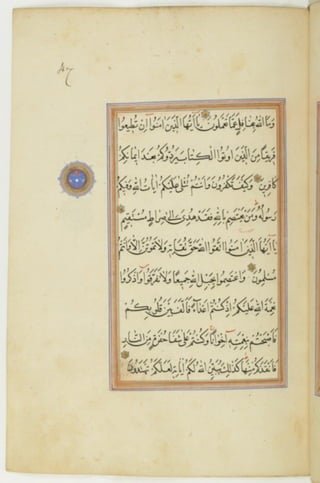 47
وَمَا اللهُ بِغَافِلٍ عَمَّا تَعْمَلُونَ يَا اَيُّهَا الَّذِينَ اٰمَنُوا اِنْ تُطِيعُوا
فَرِيقًا مِنَ الَّذِينَ اُوتُوا الْكِتَابَ يَرُدُّوكُمْ بَعْدَ اِيمَانِكُمْ
كَافِرِينَ وَكَيْفَ تَكْفُرُونَ وَاَنْتُمْ تُتْلٰى عَلَيْكُمْ اٰيَاتُ اللهِ وَفِيكُمْ
رَسُولُهُ وَمَنْ يَعْتَصِمْ بِاللهِ فَقَدْ هُدِيَ اِلٰى صِرَاطٍ مُسْتَقِيمٍ
يَا اَيُّهَا الَّذِينَ اٰمَنُوا اتَّقُوا اللهَ حَقَّ تُقَاتِهِ وَلَا تَمُوتُنَّ اِلَّا وَاَنْتُمْ
مُسْلِمُونَ وَاعْتَصِمُوا بِحَبْلِ اللهِ جَمِيعًا وَلَا تَفَرَّقُوا وَاذْكُرُوا
نِعْمَةَ اللهِ عَلَيْكُمْ اِذْ كُنْتُمْ اَعْدَاءً فَاَلَّفَ بَيْنَ قُلُوبِكُمْ
فَاَصْبَحْتُمْ بِنِعْمَتِهِ اِخْوَانًا وَكُنْتُمْ عَلٰى شَفَا حُفْرَةٍ مِنَ النَّارِ
فَاَنْقَذَكُمْ مِنْهَا كَذٰلِكَ يُبَيِّنُ اللهُ لَكُمْ اٰيَاتِهِ لَعَلَّكُمْ تَهْتَدُونَ